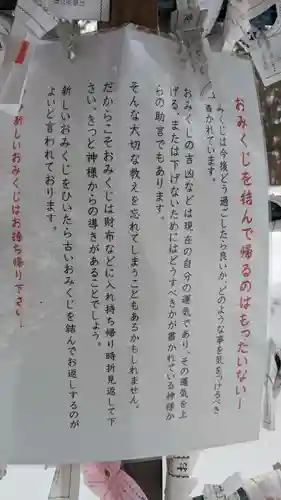 おみくじを結んで帰るのはもったいない！
みくじは今後どう過ごしたら良いか、どのような事を気をつけるべき
書かれています。
おみくじの吉凶などは現在の自分の運気であり、その運気を上
げる、または下げないためにはどうすべきかが書かれている神様か
らの助言でもあります。
そんな大切な教えを忘れてしまうこともあるかもしれません。
だからこそおみくじは財布などに入れ持ち帰り時折見返して下
さい。きっと神様からの導きがあることでしょう。
新しいおみくじをひいたら古いおみくじを結んでお返しするのが
よいと言われております。
新しいおみくじはお持ち帰り下さい